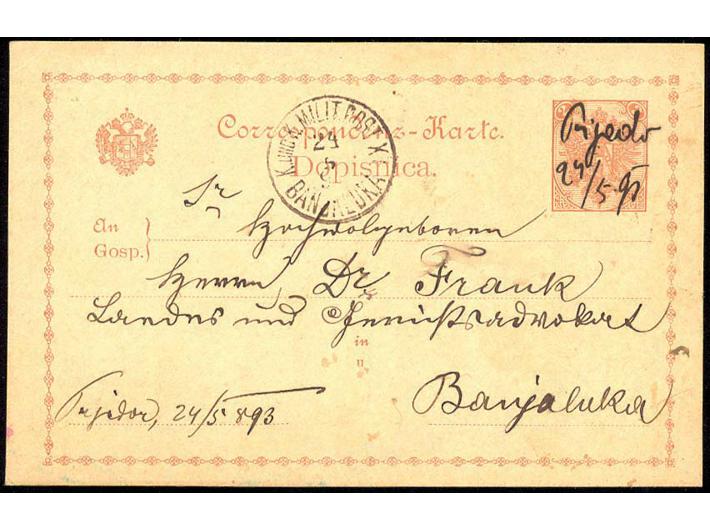 Correspondenz-Karte.
Dopisnica.
K.UND K. MILIT. POST X
24
5
BANJALUKA
Prjedor
24/5 93
Sr
An
Gosp.
Hochwolgeboren
Herrn Dr Frank
Landes und Gerichtsadvokat
in
u
Banjaluka
Prjedor, 24/5 893